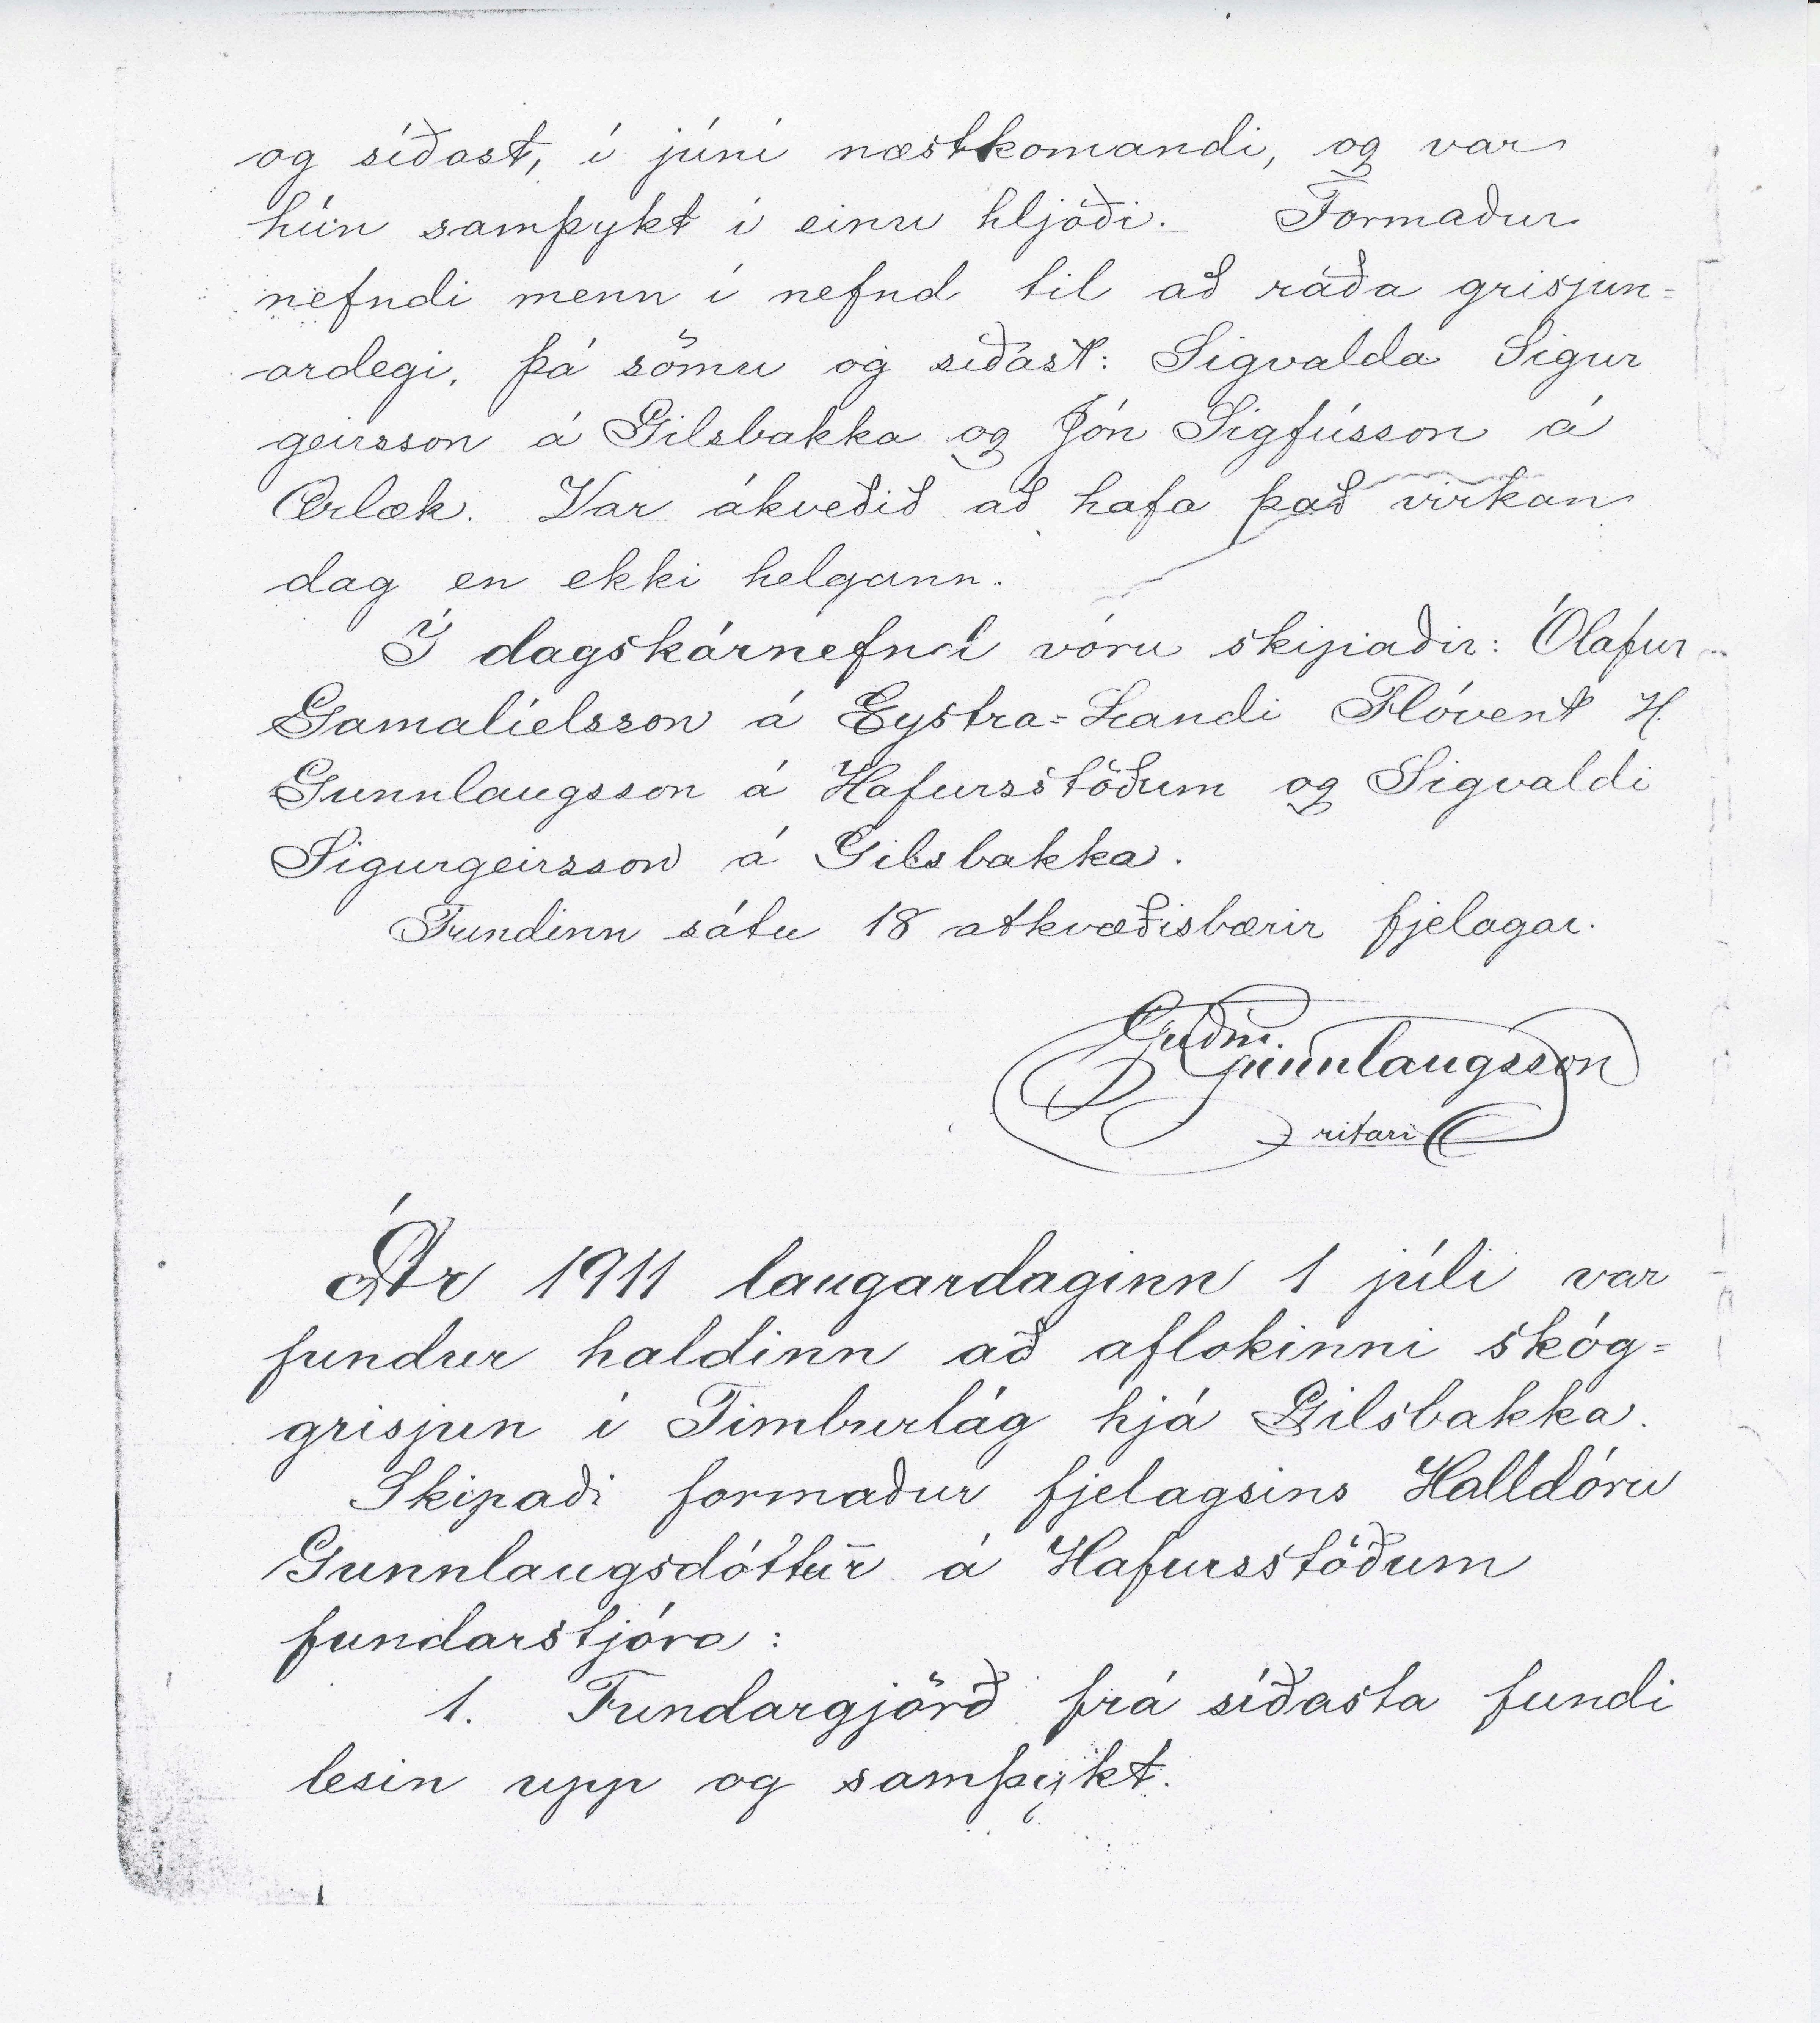 og síðast, í júní næstkomandi, og var
hún samþykt í einu hljóði. Formaður
nefndi menn í nefnd til að ráða grisjun=
ardegi, þá sömu og síðast: Sigvalda Sigur
geirsson á Gilsbakka og Jón Sigfússon á
Ærlæk. Var ákveðið að hafa það virkan
dag en ekki helgann.
Í dagskárnefnd vóru skipaðir: Ólafur
Gamalíelsson á Eystra=Landi Flóvent H.
Gunnlaugsson á Hafursstöðum og Sigvaldi
Sigurgeirsson á Gilsbakka.
Fundinn sátu 18 atkvæðisbærir fjelagar.
Guðm.
Gunnlaugsson
ritari
Ár 1911 laugardaginn 1 júli var
fundur haldinn að aflokinni skóg=
grisjun í Timburlág hjá Gilsbakka.
Skipaði formaður fjelagsins Halldóru
Gunnlaugsdóttur á Hafursstöðum
fundarstjóra:
1. Fundargjörð frá síðasta fundi
lesin upp og samþykt.